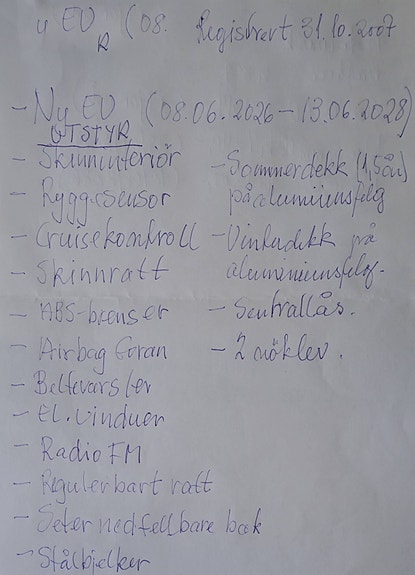 u EU (08. Registrert 31.10.2007
R
- Ny EU (08.06.2026 - 13.06.2028)
UTSTYR
- Skinninteriör
- Ryggesensor
- Cruisekontroll
- Skinnratt
- ABS-bremser
- Airbag foran
- Beltevarsler
- El. vinduer
- Radio FM
- Regulerbart ratt
- Seter nedfellbare bak
- Stålbjelker
- Sommerdekk (1,5år)
på alumiiunsfelg
- Vinterdekk på
aluminiumsfelg.
- Sentrallås.
- 2 nökler.